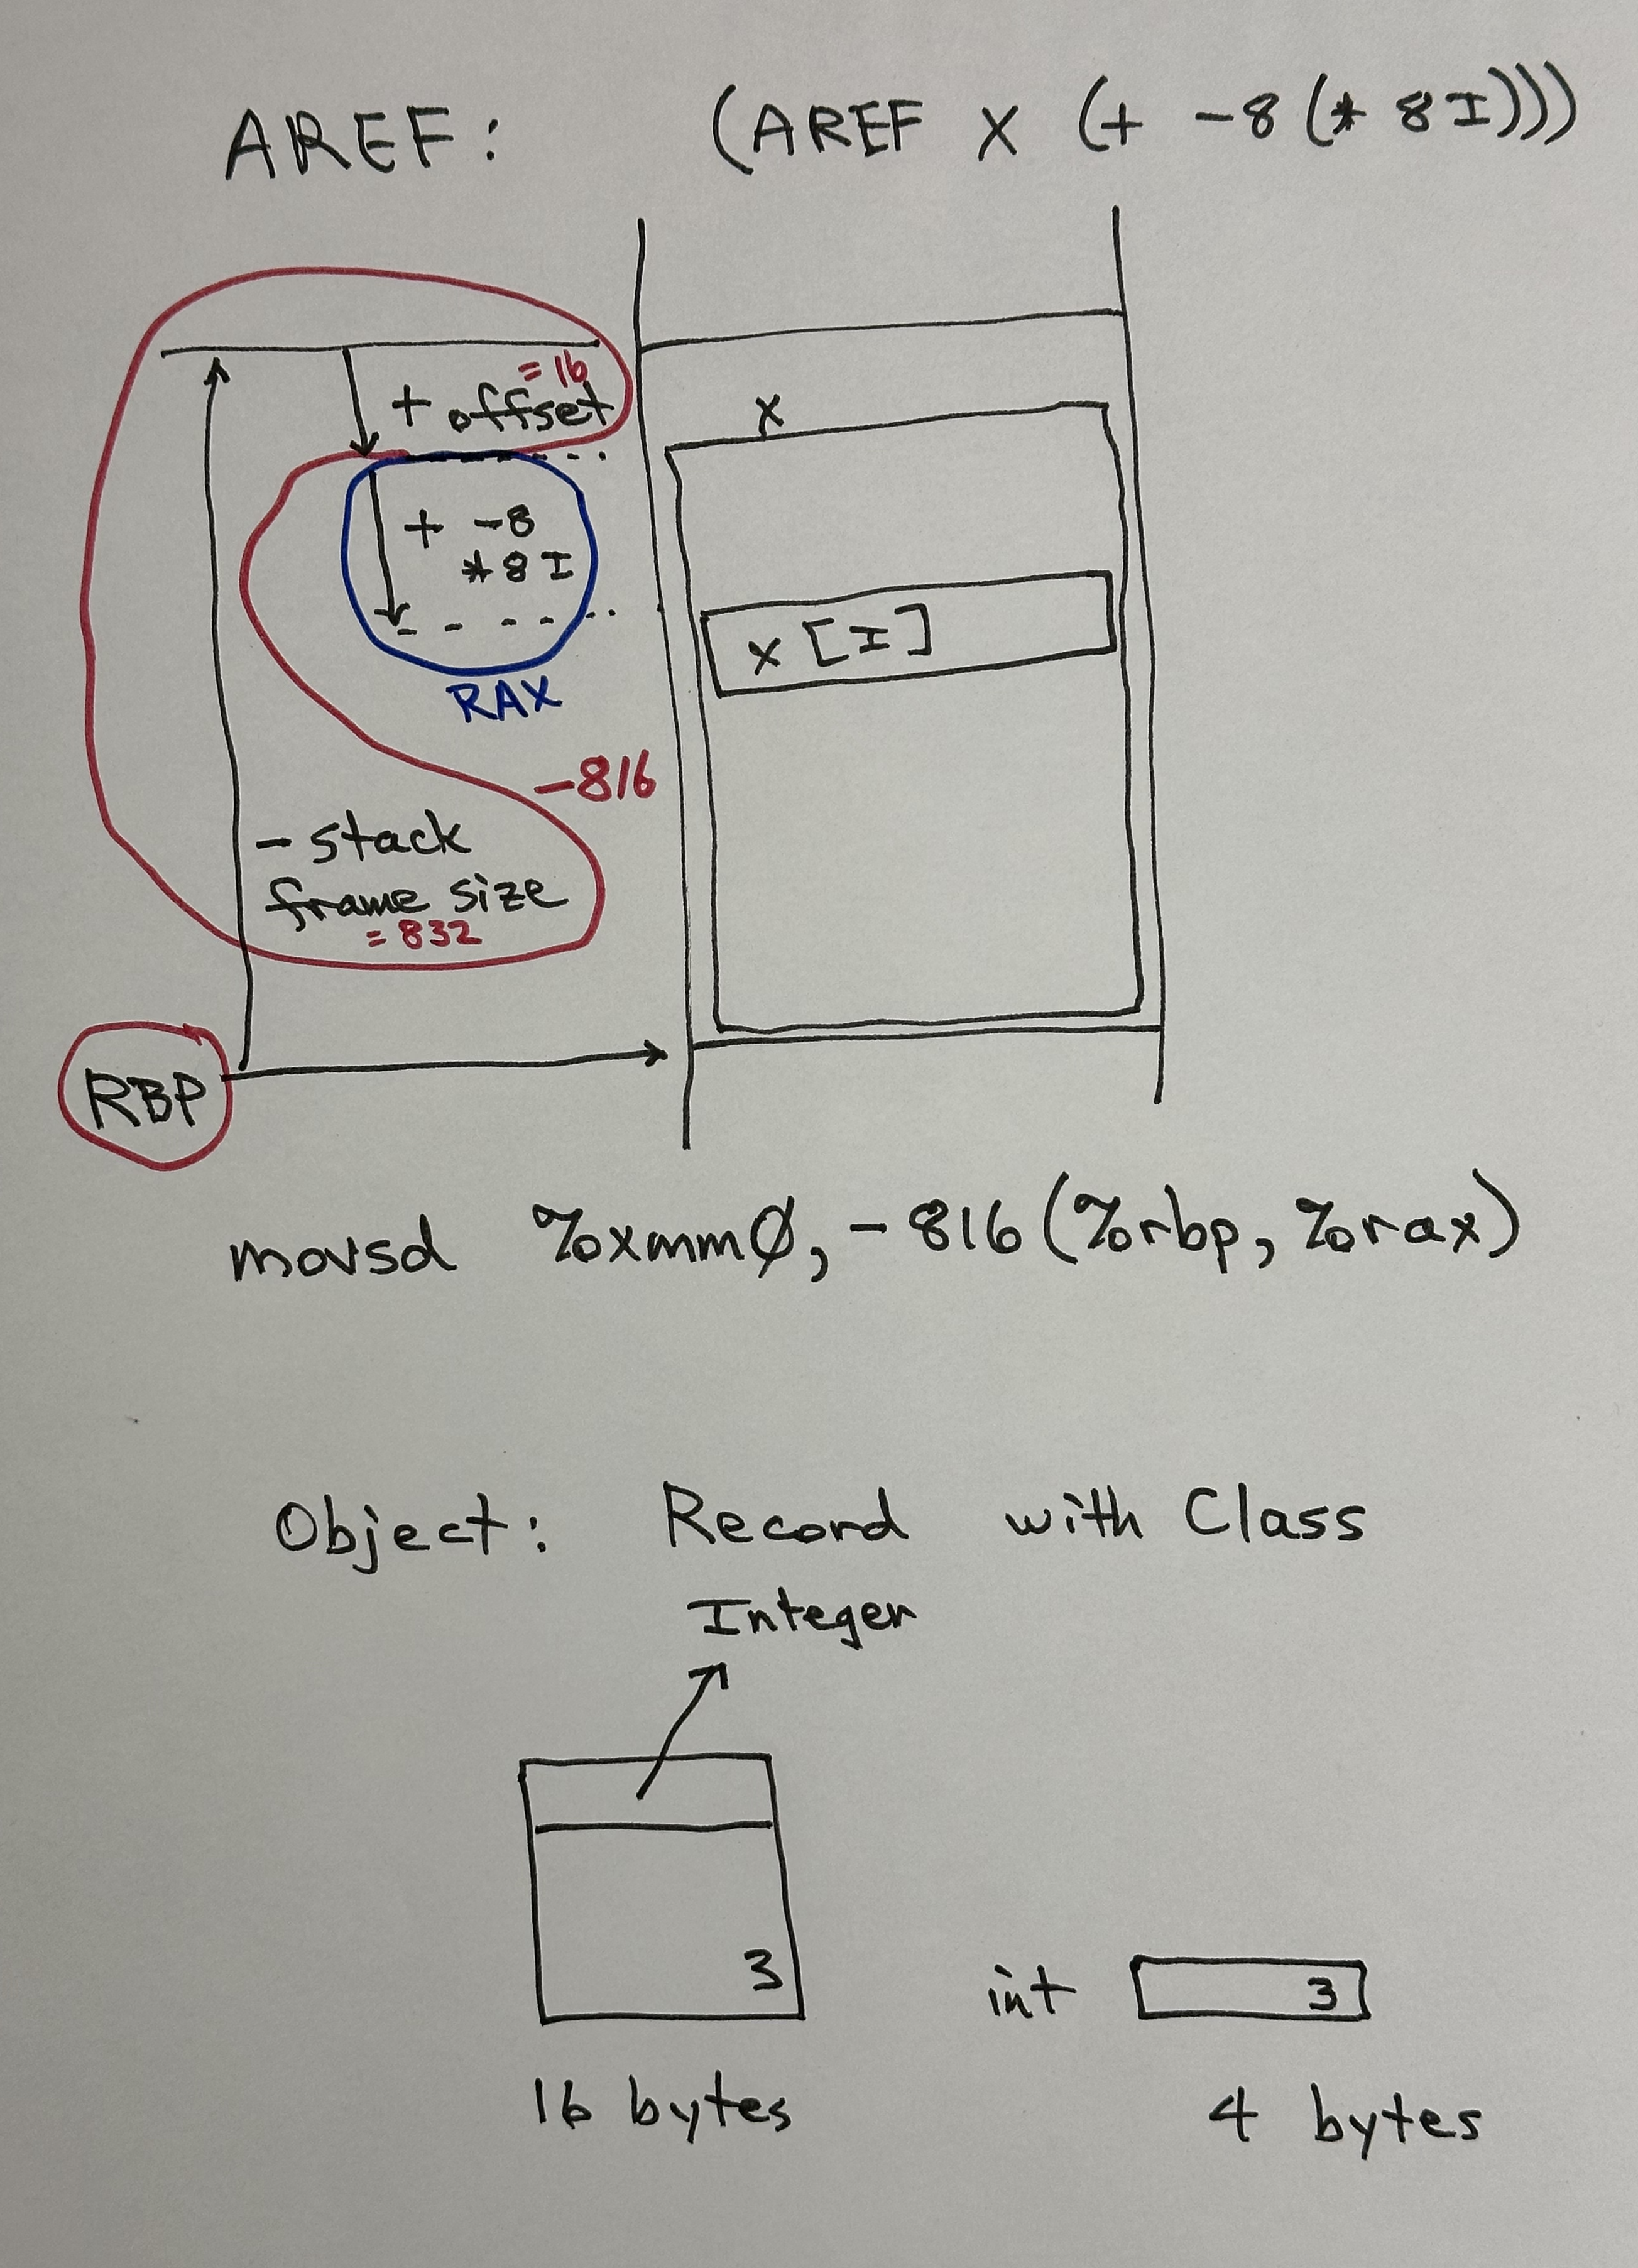 AREF: (AREF X (+ -8 (* 8 I)))
= 16
+ offset
X
+ -8
* 8 I
X [I]
RAX
-816
- stack
frame size
= 832
RBP
movsd %xmm0, -816(%rbp, %rax)
Object: Record with Class
Integer
3
int 3
16 bytes 4 bytes